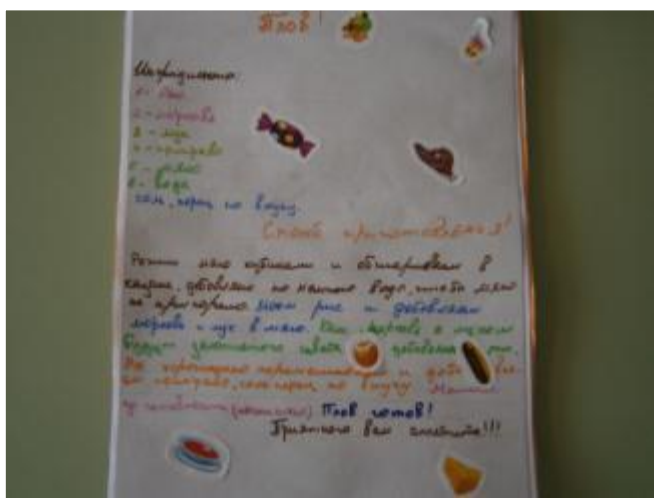 Плов
Необходимо:
1 - рис
2 - морковь
3 - лук
4 - приправа
5 - мясо
6 - вода
соль, перец по вкусу.
Способ приготовления!
Режем мясо кубиками и обжариваем в
казане, добавляем по немного воды, чтобы мясо
не пригорело. Моем рис и добавляем
морковь и лук в мясо. Как морковь с луком
будут золотистого цвета добавляем
Все хорошенько перемешиваем и
приправы, соль перец по вкусу.
Плов готов!
Приятного вам аппетита!!!